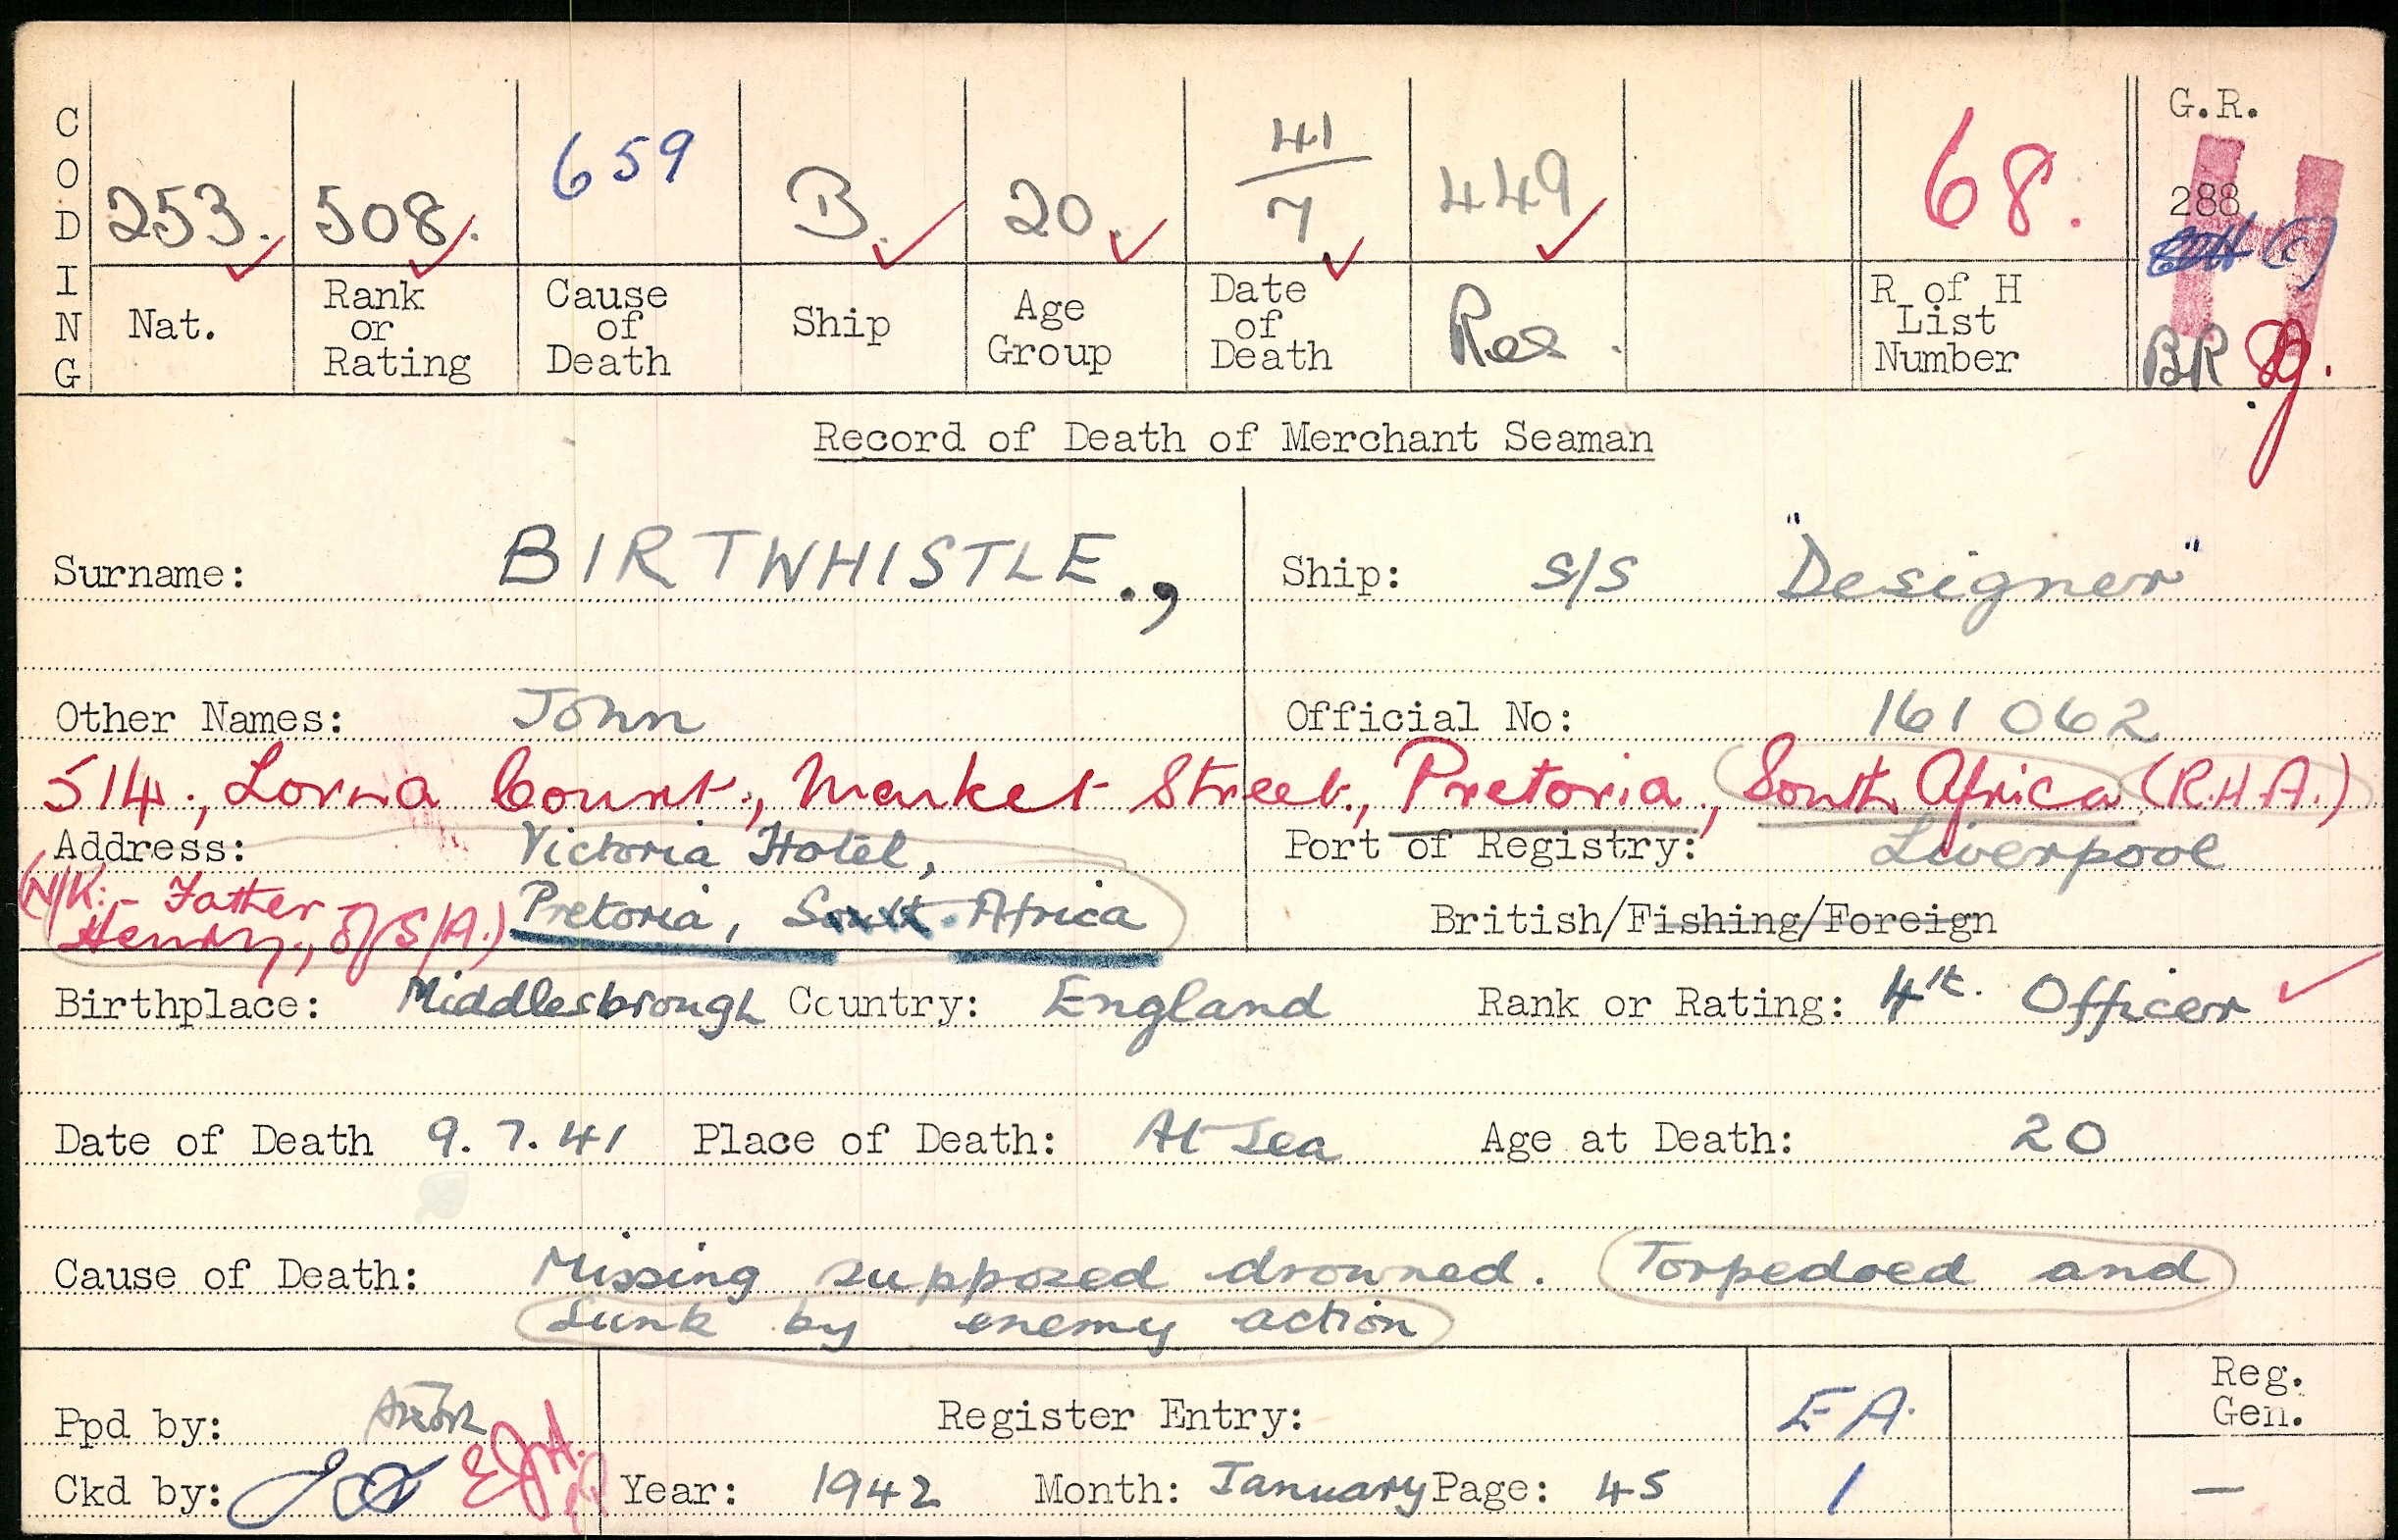 CODING
253. 508. 659 B. 20. 41/7 449 68. G.R.
288
(c)
Nat. Rank or Rating Cause of Death Ship Age Group Date of Death Res. R of H List Number BR
Record of Death of Merchant Seaman
Surname: BIRTWHISTLE., Ship: S/S "Designer"
Other Names: John Official No: 161062
514., Lorna Court., Market Street., Pretoria., South Africa (R.H.A.)
Address: Victoria Hotel, Port of Registry: Liverpool
(N/K:- Father - Pretoria, South Africa British/Fishing/Foreign
Henry., of S/A.)
Birthplace: Middlesbrough Country: England Rank or Rating: 4th. Officer
Date of Death 9.7.41 Place of Death: At Sea Age at Death: 20
Cause of Death: Missing supposed drowned. Torpedoed and
sunk by enemy action
Ppd by: Register Entry: EA. Reg. Gen.
Ckd by: EJH. Year: 1942 Month: January Page: 45 1 —